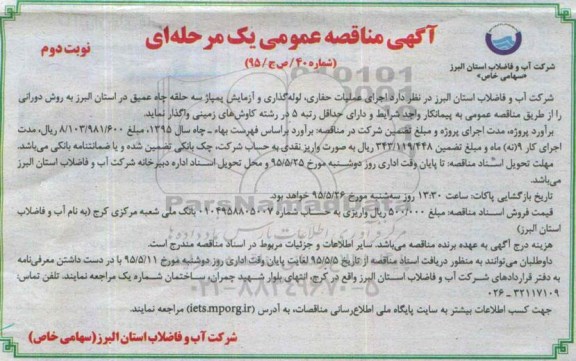 آگهی مناقصه عمومی یک مرحله‌ای
نوبت دوم
(شماره ۴۰/ص ج/۹۵)
شرکت آب و فاضلاب استان البرز
«سهامی خاص»
شرکت آب و فاضلاب استان البرز در نظر دارد اجرای عملیات حفاری، لوله‌گذاری و آزمایش پمپاژ سه حلقه چاه عمیق در استان البرز به روش دورانی
را از طریق مناقصه عمومی به پیمانکار واجد شرایط و دارای حداقل رتبه ۵ در رشته کاوش‌های زمینی واگذار نماید.
برآورد پروژه، مدت اجرای پروژه و مبلغ تضمین شرکت در مناقصه: برآورد براساس فهرست بهاء - چاه سال ۱۳۹۵، مبلغ ۸/۱۰۳/۹۸۱/۶۰۰ ریال، مدت
اجرای کار ۹(نه) ماه و مبلغ تضمین ۳۴۳/۱۱۹/۴۴۸ ریال به صورت واریز نقدی به حساب شرکت، چک بانکی تضمین شده و یا ضمانتنامه بانکی می‌باشد.
مهلت تحویل اسناد مناقصه: تا پایان وقت اداری روز دوشنبه مورخ ۹۵/۵/۲۵ و محل تحویل اسناد اداره دبیرخانه شرکت آب و فاضلاب استان البرز
می‌باشد.
تاریخ بازگشایی پاکات: ساعت ۱۳:۳۰ روز سه‌شنبه مورخ ۹۵/۵/۲۶ خواهد بود.
قیمت فروش اسناد مناقصه: مبلغ ۵۰۰/۰۰۰ ریال واریزی به حساب شماره ۰۱۰۴۹۵۸۸۰۵۰۰۷ بانک ملی شعبه مرکزی کرج (به نام آب و فاضلاب
استان البرز)
هزینه درج آگهی به عهده برنده مناقصه می‌باشد. سایر اطلاعات و جزئیات مربوط در اسناد مناقصه مندرج است.
داوطلبان می‌توانند به منظور دریافت اسناد مناقصه از تاریخ ۹۵/۵/۵ لغایت پایان وقت اداری روز دوشنبه مورخ ۹۵/۵/۱۱ با در دست داشتن معرفی‌نامه
به دفتر قراردادهای شرکت آب و فاضلاب استان البرز واقع در کرج، انتهای بلوار شهید چمران، ساختمان شماره یک مراجعه نمایند. تلفن تماس:
۳۲۱۱۷۱۰۹ - ۰۲۶
جهت کسب اطلاعات بیشتر به سایت پایگاه ملی اطلاع‌رسانی مناقصات، به آدرس (iets.mporg.ir) مراجعه نمایند.
شرکت آب و فاضلاب استان البرز(سهامی خاص)